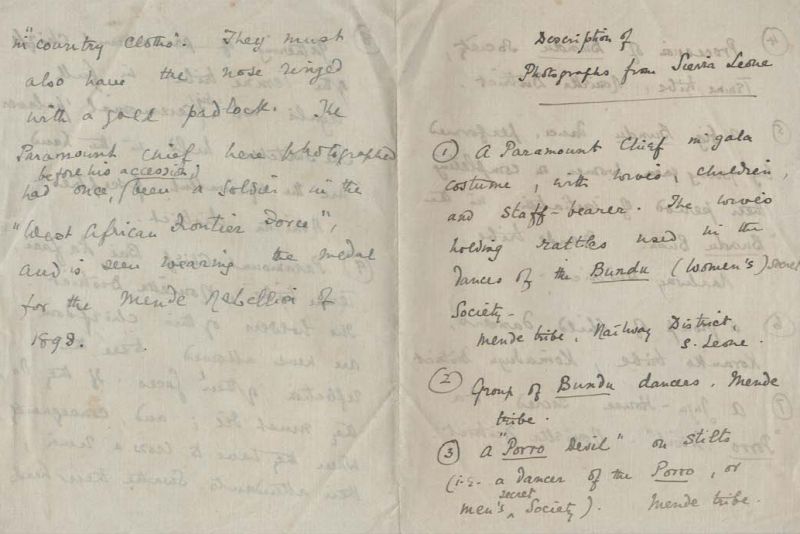 in "country cloths". They must
also have the nose ringed
with a gold padlock. The
Paramount Chief here photographed
had once, (before his accession) been a soldier in the
"West African Frontier Force",
and is seen wearing the medal
for the Mende Rebellion of
1898.
Description of
Photographs from Sierra Leone
① A Paramount Chief in gala
costume, with wives, children,
and staff-bearer. The wives
holding rattles used in the
dances of the Bundu (women's) secret
Society -
Mende tribe, Railway District,
S. Leone.
② Group of Bundu dances. Mende
tribe.
③ A "Porro Devil" on stilts
(i.e. a dancer of the Porro, or
men's secret Society). Mende tribe.